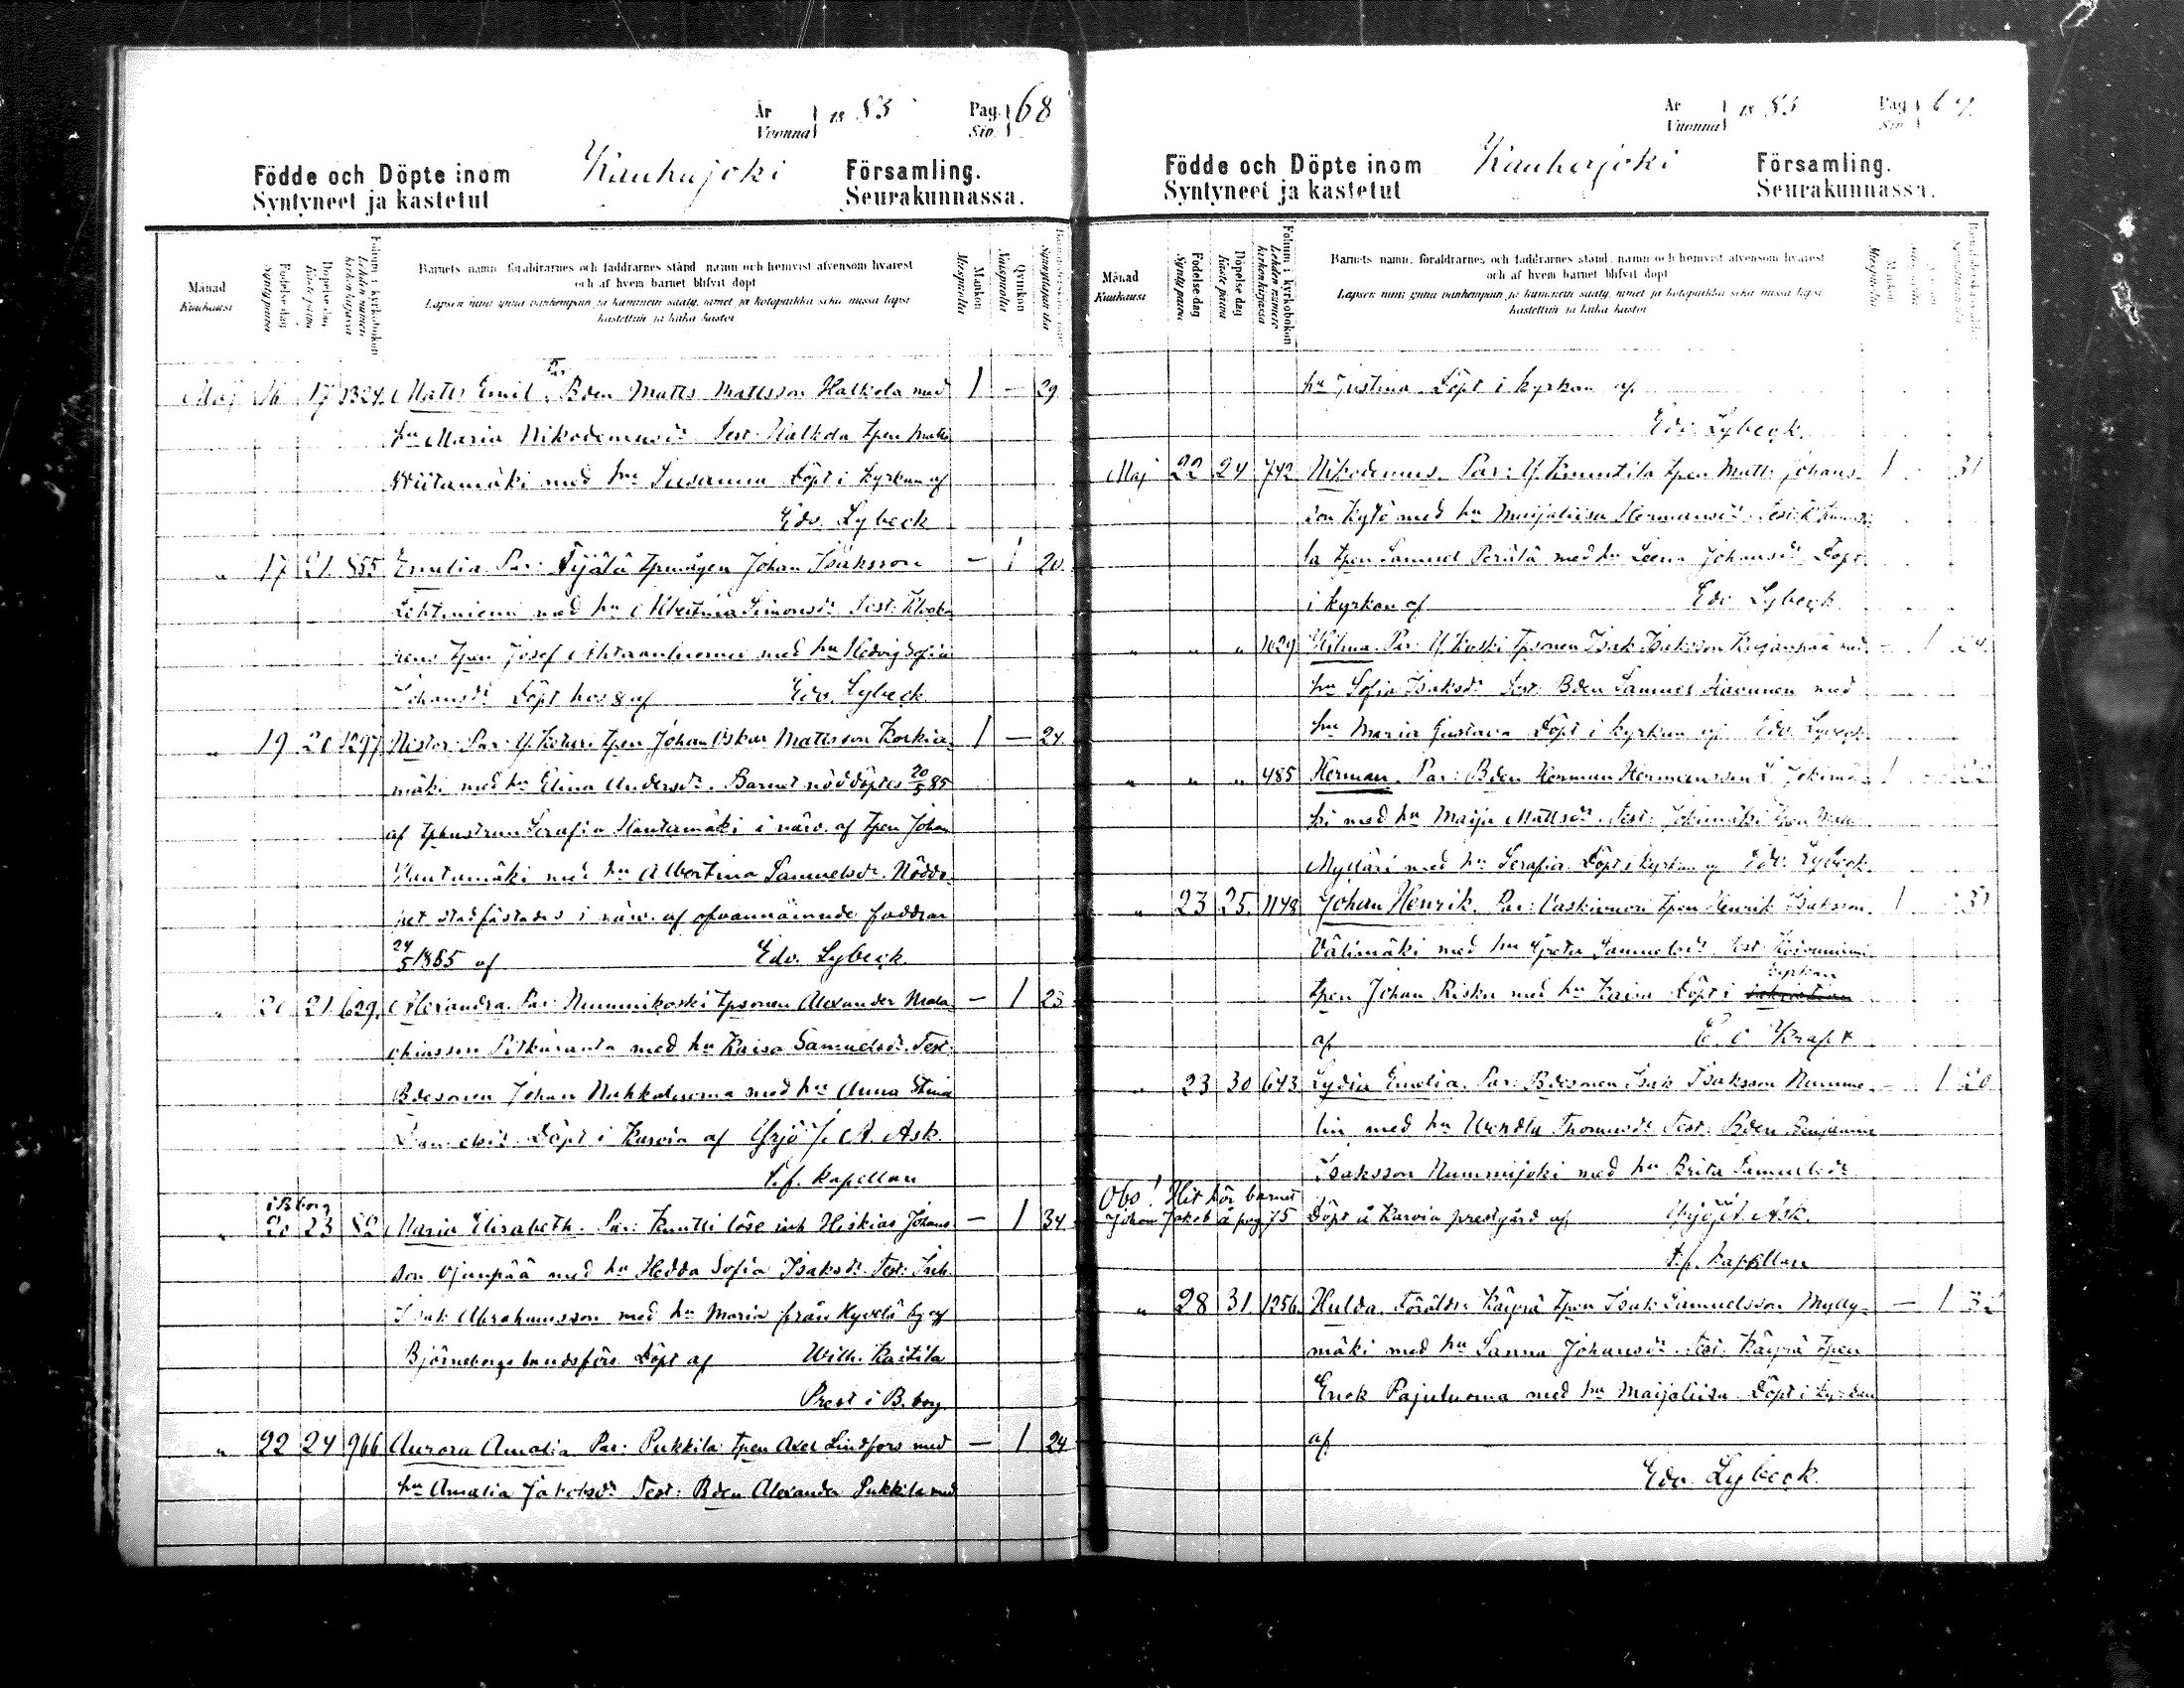 År
Vuonna
1885
Pag.
Siv.
68
Födde och Döpte inom Kauhajoki Församling.
Syntyneet ja kastetut Seurakunnassa.
Månad
Kuukausi
Födelsedag
Syntypäivä
Döpelsedag
Kastepäivä
Folium i kyrkoboken
Lehden numero kirkonkirjassa
Barnets namn, föräldrarnes och faddrarnes stånd, namn och hemvist äfvensom hvarest
och af hvem barnet blifvit döpt
Lapsen nimi ynnä vanhempain ja kummein sääty, nimet ja kotopaikka sekä missä lapsi
kastettiin ja kuka kastoi
Mankön
Miespuolia
Qvinkön
Naispuolia
Maj 16 17 1324. Matts Emil. Par: Bden Matts Mattsson Halkola med 1 — 29
hu Maria Nikodemusdr. Test: Halkola tpen Matts
Wiitamäki med hu Susanna Döpt i kyrkan af
Edv. Lybeck
" 17 21 855 Emelia. Par: Äijälä Johan Isaksson — 1 20
Lehtiniemi med hu Albertina Simonsdr Test: Klocka
rens tpen Josef med hu Hedvig Sofia
Johansdr Döpt hos af Edv. Lybeck
" 19 20 1297 Nestor. Par: Y. Keturi tpen Johan Oskar Mattsson Korkia 1 — 24
mäki med hu Elina Andersdr. Barnet nöddöptes 20/5 85
af Serafia Hautamäki i närv. af tpen Johan
Hautamäki med hu Albertina Samuelsdr. Nöddo
pet stadfästades i närv. af ofvannämnde faddrar
24/5 1885 af Edv. Lybeck
" 20 21 629. Alexandra. Par: Nummikoski tpsonen Alexander Mala — 1 23
chiasson Pitkäranta med hu Kaisa Samuelsdr. Test:
Bdesonen Johan Nuhkaluoma med hu Anna Stina
Danielsdr. Döpt i Karvia af Yrjö J. A. Ask.
t.f. kapellan
i B:borg
" 20 23 82 Maria Elisabeth. Par: Knutti löse inh Hiskias Johans — 1 34
son Ojanpää med hu Hedda Sofia Isaksdr. Test: Inh.
Isak Abrahamsson med hu Maria från Hyvelä by af
Björneborgs landsförs. Döpt af Wilh. Kastila
Prest i B.borg
" 22 24 966 Aurora Amalia Par: Pukkila tpen Axel Lindfors med — 1 24
hu Amalia Jakobsdr Test: Bden Alexander Pukkila med
År
Vuonna
1885
Pag
Siv.
69
Födde och Döpte inom Kauhajoki Församling.
Syntyneet ja kastetut Seurakunnassa.
Månad
Kuukausi
Födelsedag
Syntypäivä
Döpelsedag
Kastepäivä
Folium i kyrkoboken
Lehden numero kirkonkirjassa
Barnets namn, föräldrarnes och faddrarnes stånd, namn och hemvist äfvensom hvarest
och af hvem barnet blifvit döpt
Lapsen nimi ynnä vanhempain ja kummein sääty, nimet ja kotopaikka sekä missä lapsi
kastettiin ja kuka kastoi
Mankön
Miespuolia
hu Justina Döpt i kyrkan af
Edv. Lybeck.
Maj 22 24 742 Nikodemus. Par: Y. Knuutila tpen Matts Johans 1 31
son Kytö med hu Maijaliisa Hermansdr. Test: Knuuti
la tpen Samuel Perälä med hu Leena Johansdr Döpt
i kyrkan af Edv. Lybeck
" " " 1029 Hilma. Par: Y. Koski tpsonen Isak Isaksson Kujanpää med — 1 24
hu Sofia Isaksdr Test: Bden Samuel Havunen med
hu Maria Gustava Döpt i kyrkan af Edv. Lybeck
" " " 485 Herman. Par: Bden Herman Hermansson L. Jokimä 1 22
ki med hu Maija Mattsdr. Test: Jokimäki tpen
Mylläri med hu Serafia. Döpt i kyrkan af Edv. Lybeck
" 23 25 1148 Johan Henrik. Par: Vaskivuori tpen Henrik Isaksson 1
Välimäki med hu Greta Samuelsdr. Test: Koivuniemi
tpen Johan Risku med hu Kaisa Döpt i kyrkan
af E. C. Kraft
" 23 30 643 Lydia Emelia. Par: Bdesonen Isak Isaksson Numme — 1 20
lin med hu Wendla Thomasdr Test: Bden Benjamin
Isaksson Nummijoki med hu Brita Samuelsdr
Obs! Hit hör barnet
Johan Jakob å pag 75 Döpt å Karvia prestgård af Yrjö J. A. Ask.
t.f. kapellan
" 28 31 1256 Hulda. Föräldr: Käyrä tpen Isak Samuelsson Mylly — 1
mäki med hu Sanna Johansdr. Test: Käyrä tpen
Enok Pajuluoma med hu Maijaliisa Döpt i kyrkan
af
Edv. Lybeck.